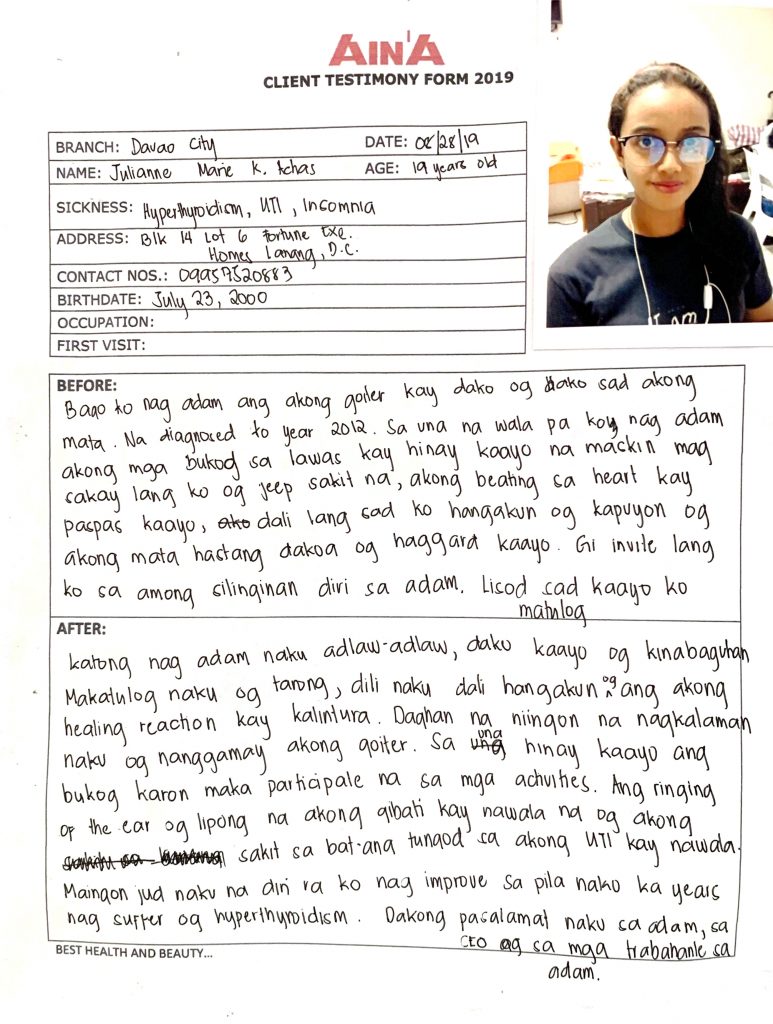 AIN'A
CLIENT TESTIMONY FORM 2019
BRANCH: Davao City DATE: 08/28/19
NAME: Julianne Marie K. Achas AGE: 19 years old
SICKNESS: Hyperthyroidism, UTI, Insomnia
ADDRESS: Blk 14 Lot 6 Fortune Exe.
Homes Lanang, D.C.
CONTACT NOS.: 09957520883
BIRTHDATE: July 23, 2000
OCCUPATION:
FIRST VISIT:
I am
BEFORE:
Bago ko nag adam ang akong goiter kay dako og dako sad akong
mata. Na diagnosed ko year 2012. Sa una na wala pa koy nag adam
akong mga bukog sa lawas kay hinay kaayo na mackin mag
sakay lang ko og jeep sakit na, akong beating sa heart kay
paspas kaayo, ako dali lang sad ko hangakun og kapuyon og
akong mata hastang dakoa og haggard kaayo. Gi invite lang
ko sa among silinginan diri sa adam. Lisod sad kaayo ko
matulog
AFTER:
katong nag adam naku adlaw-adlaw, dako kaayo og kinabaguhan
Makatulog naku og tarong, dili naku dali hangakun og ang akong
healing reaction kay kalintura. Daghan na niingon na nagkalaman
naku og nanggamay akong goiter. Sa una hinay kaayo ang
bukog karon maka participate na sa mga activities. Ang ringing
of the ear og lipong na akong gibati kay nawala na og akong
sakit sa bat-ana tungod sa akong UTI kay nawala.
Maingon jud naku na diri ra ko nag improve sa pila nako ka years
nag suffer og hyperthyroidism. Dakong pasalamat naku sa adam, sa
CEO og sa mga trabahante sa
adam.
BEST HEALTH AND BEAUTY...